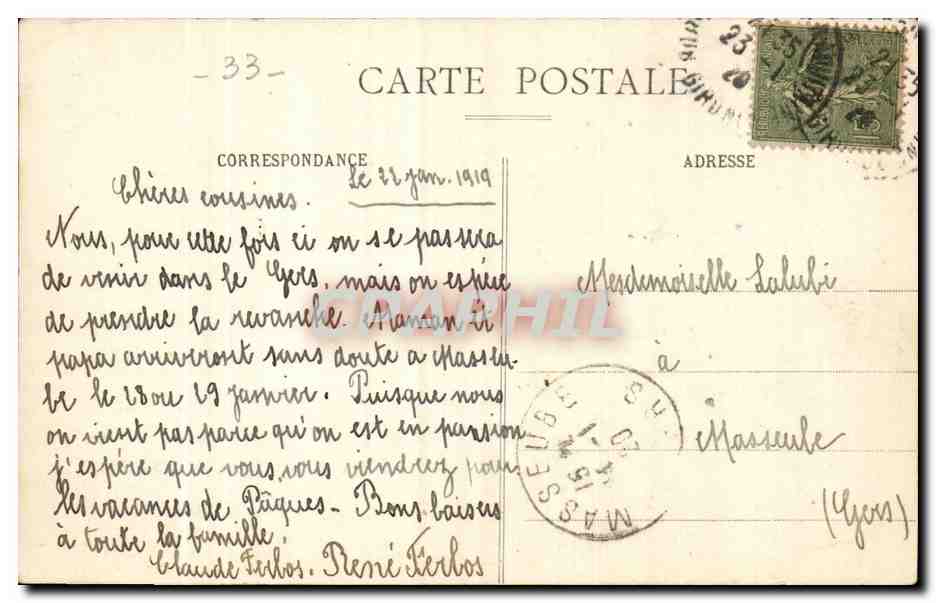 - 33 -
CARTE POSTALE
CORRESPONDANCE
ADRESSE
Le 22 jan. 1919
Chères cousines.
Nous, pour cette fois ci on se passera
de venir dans le Gers, mais on espère
de prendre la revanche. Maman et
papa arriveront sans doute a Masseu-
be le 28 ou 29 janvier. Puisque nous
on vient pas parce qu'on est en pansion
j'espère que vous, vous viendrez pour
les vacances de Pâques - Bons baisers
à toute la famille.
Claude Ferbos. René Ferbos
Mesdemoiselle Lalubi
à
Masseube
(Gers)
MASSEUBE
GERS
15
CARTE GRAPHIL